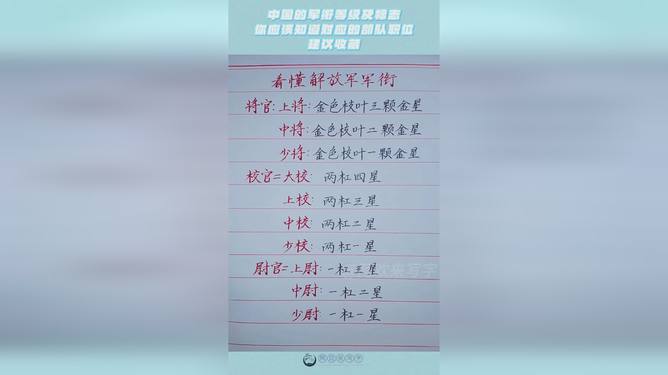 中国的军衔等级及标志
你应该知道对应的部队职位
建议收藏
看懂解放军军衔
将官:上将:金色枝叶三颗金星
中将:金色枝叶二颗金星
少将:金色枝叶一颗金星
校官=大校:两杠四星
上校:两杠三星
中校:两杠二星
少校:两杠一星
尉官=上尉:一杠三星
中尉:一杠二星
少尉:一杠一星